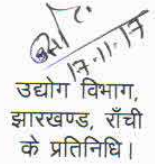 17.11.17
उद्योग विभाग,
झारखण्ड, राँची
के प्रतिनिधि।